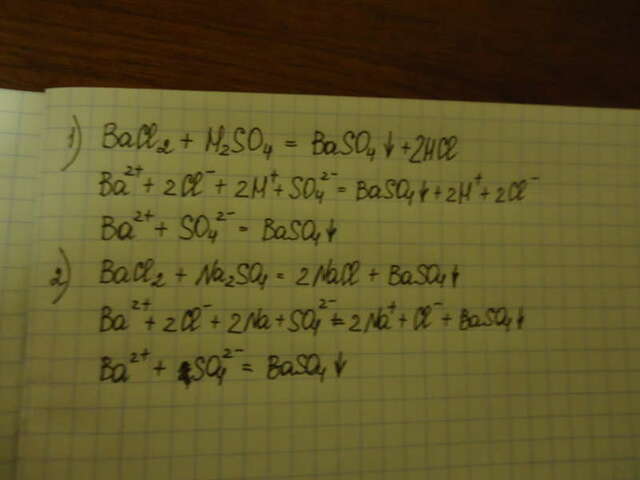 1) BaCl₂ + H₂SO₄ = BaSO₄↓ + 2HCl
Ba²⁺ + 2Cl⁻ + 2H⁺ + SO₄²⁻ = BaSO₄↓ + 2H⁺ + 2Cl⁻
Ba²⁺ + SO₄²⁻ = BaSO₄↓
2) BaCl₂ + Na₂SO₄ = 2NaCl + BaSO₄↓
Ba²⁺ + 2Cl⁻ + 2Na + SO₄²⁻ = 2Na⁺ + Cl⁻ + BaSO₄↓
Ba²⁺ + SO₄²⁻ = BaSO₄↓